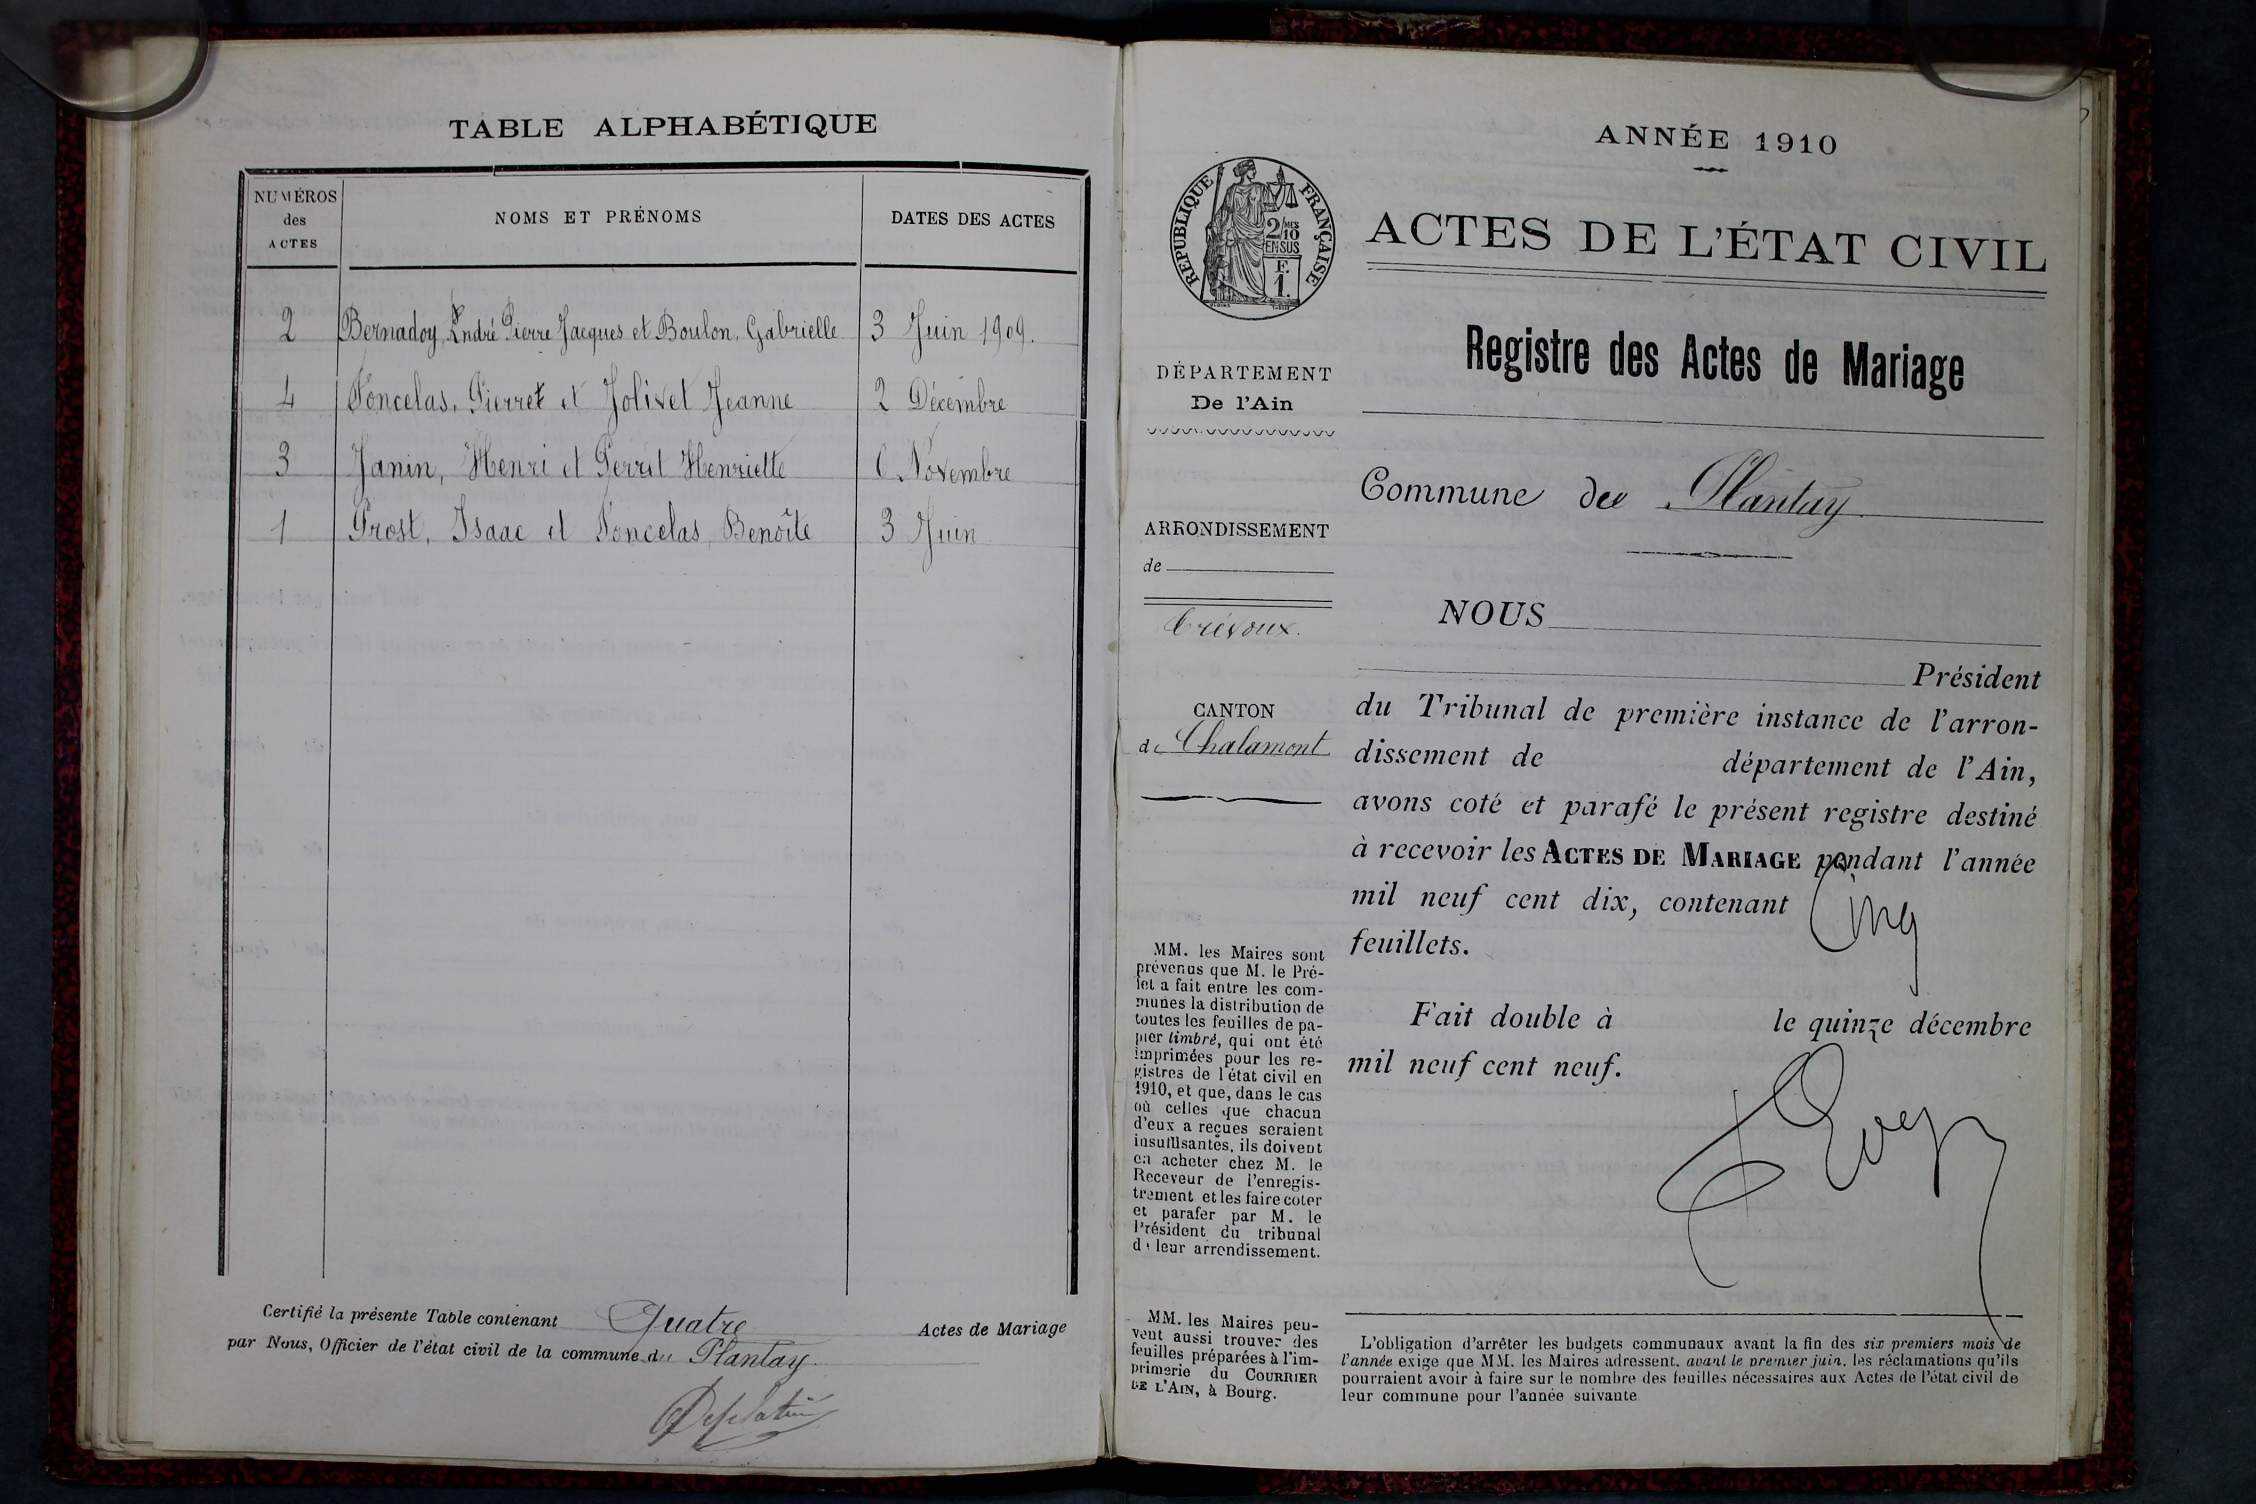 TABLE ALPHABÉTIQUE
NUMÉROS
des
ACTES
NOMS ET PRÉNOMS
DATES DES ACTES
2 Bernadoy, André Pierre Jacques et Boulon, Gabrielle 3 Juin 1909.
4 Poncelas, Pierre et Jolivet Jeanne 2 Décembre
3 Janin, Henri et Perret Henriette 6 Novembre
1 Prost, Isaac et Poncelas Benoîte 3 Juin
Certifié la présente Table contenant Quatre Actes de Mariage
par Nous, Officier de l'état civil de la commune du Plantay
ANNÉE 1910
RÉPUBLIQUE FRANÇAISE
2/10 MES
EN SUS
F.
1.
ACTES DE L'ÉTAT CIVIL
Registre des Actes de Mariage
DÉPARTEMENT
De l'Ain
Commune du Plantay
ARRONDISSEMENT
de
Trévoux.
CANTON
de Chalamont
NOUS
Président
du Tribunal de première instance de l'arron-
dissement de département de l'Ain,
avons coté et parafé le présent registre destiné
à recevoir les ACTES DE MARIAGE pendant l'année
mil neuf cent dix, contenant Cinq
feuillets.
Fait double à le quinze décembre
mil neuf cent neuf.
MM. les Maires sont
prévenus que M. le Pré-
fet a fait entre les com-
munes la distribution de
toutes les feuilles de pa-
pier timbré, qui ont été
imprimées pour les re-
gistres de l'état civil en
1910, et que, dans le cas
où celles que chacun
d'eux a reçues seraient
insuffisantes, ils doivent
en acheter chez M. le
Receveur de l'enregis-
trement et les faire coter
et parafer par M. le
Président du tribunal
de leur arrondissement.
MM. les Maires peu-
vent aussi trouver des
feuilles préparées à l'im-
primerie du COURRIER
DE L'AIN, à Bourg.
L'obligation d'arrêter les budgets communaux avant la fin des six premiers mois de
l'année exige que MM. les Maires adressent, avant le premier juin, les réclamations qu'ils
pourraient avoir à faire sur le nombre des feuilles nécessaires aux Actes de l'état civil de
leur commune pour l'année suivante